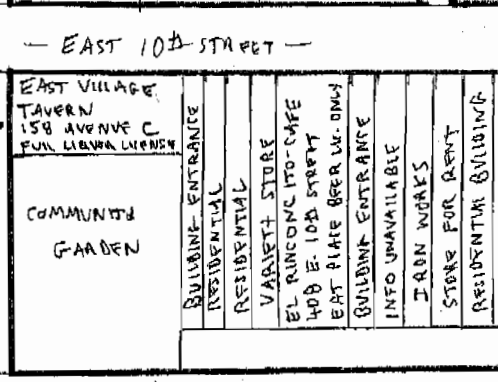 — EAST 10th STREET —
EAST VILLAGE
TAVERN
158 AVENUE C
FULL LIQUOR LICENSE
COMMUNITY
GARDEN
BUILDING ENTRANCE
RESIDENTIAL
RESIDENTIAL
VARIETY STORE
EL RINCONCITO-CAFE
408 E. 10th STREET
EAT PLACE BEER LIC. ONLY
BUILDING ENTRANCE
INFO UNAVAILABLE
IRON WORKS
STORE FOR RENT
RESIDENTIAL BUILDING